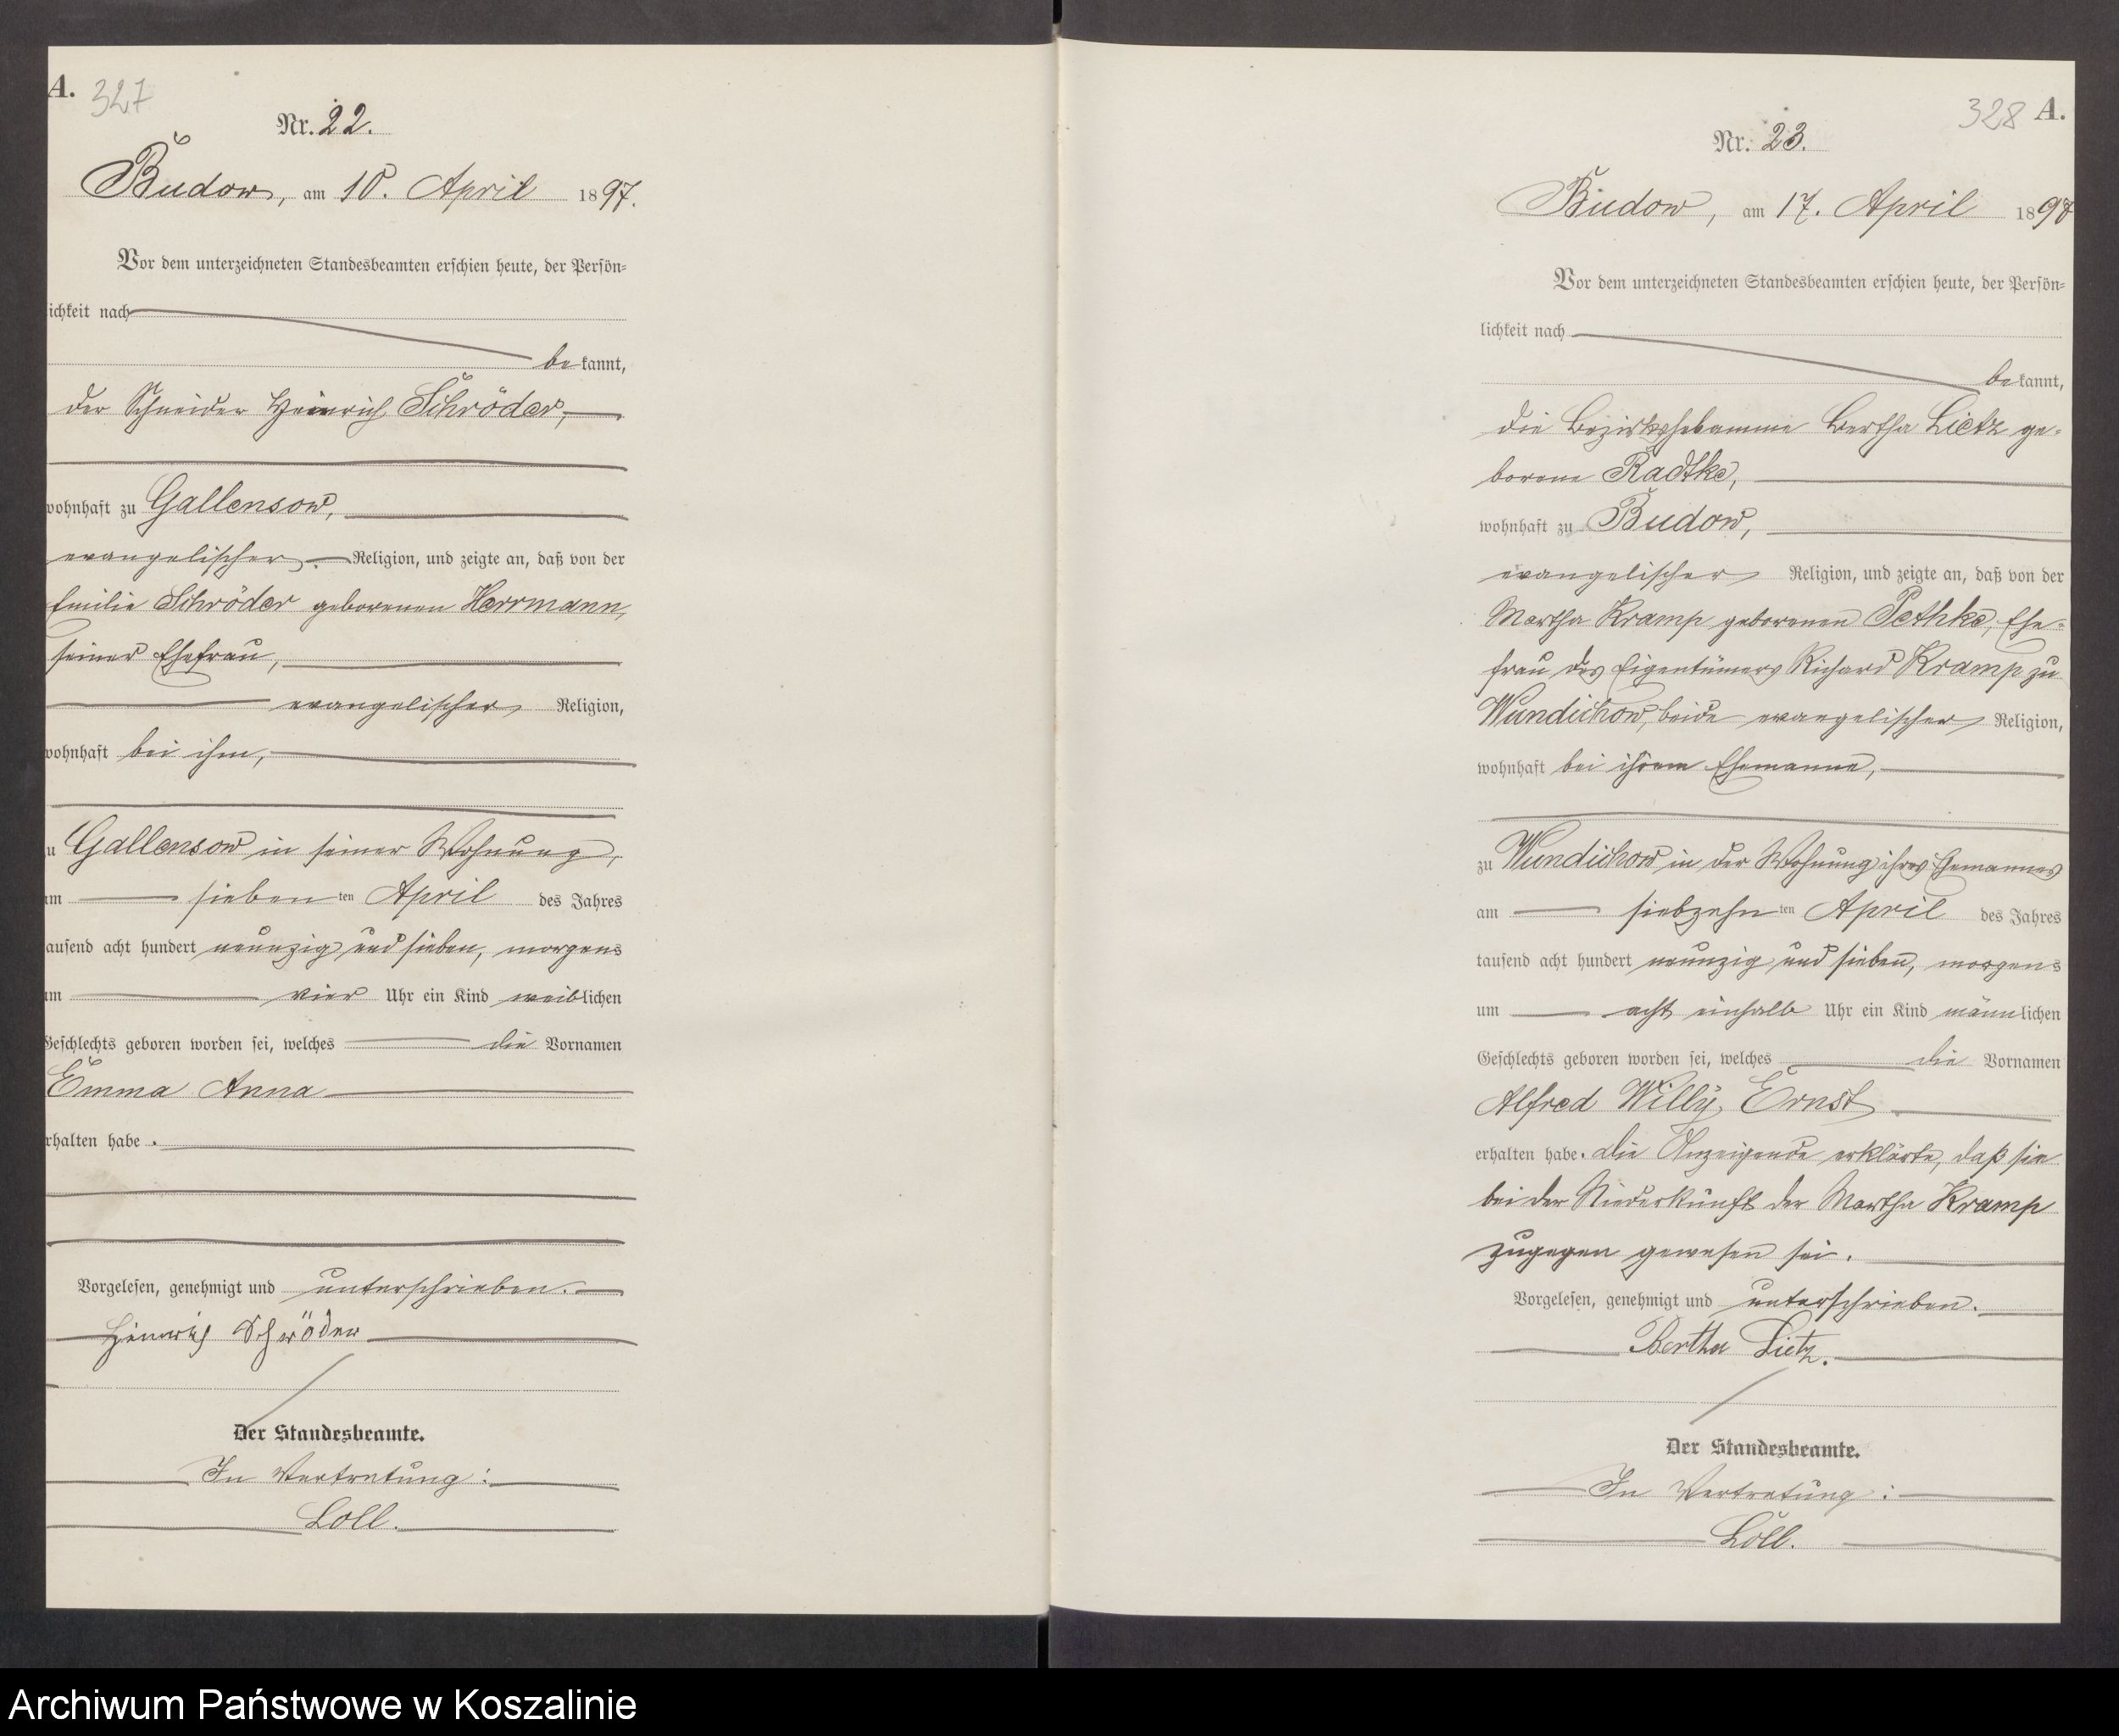 A. 327
Nr. 22.
Budow, am 10. April 1897.
Vor dem unterzeichneten Standesbeamten erschien heute, der Persön-
lichkeit nach
bekannt,
der Schneider Heinrich Schröder,
wohnhaft zu Gallensow,
evangelischer Religion, und zeigte an, daß von der
Emilie Schröder geborenen Herrmann,
seiner Ehefrau,
evangelischer Religion,
wohnhaft bei ihm,
zu Gallensow in seiner Wohnung,
am siebenten April des Jahres
tausend acht hundert neunzig und sieben, morgens
um vier Uhr ein Kind weiblichen
Geschlechts geboren worden sei, welches die Vornamen
Emma Anna
erhalten habe.
Vorgelesen, genehmigt und unterschrieben.
Heinrich Schröder
Der Standesbeamte.
In Vertretung:
Loll.
328 A.
Nr. 23.
Budow, am 17. April 1897
Vor dem unterzeichneten Standesbeamten erschien heute, der Persön-
lichkeit nach
bekannt,
die Bezirkshebamme Bertha Lietz ge-
borene Radtke,
wohnhaft zu Budow,
evangelischer Religion, und zeigte an, daß von der
Martha Kramp geborenen Pethke, Ehe-
frau des Eigentümers Richard Kramp zu
Wundichow, beide evangelischer Religion,
wohnhaft bei ihrem Ehemanne,
zu Wundichow in der Wohnung ihres Ehemannes
am siebzehnten April des Jahres
tausend acht hundert neunzig und sieben, morgens
um acht einhalb Uhr ein Kind männlichen
Geschlechts geboren worden sei, welches die Vornamen
Alfred Willy Ernst
erhalten habe. Die Anzeigende erklärte, daß sie
bei der Niederkunft der Martha Kramp
zugegen gewesen sei.
Vorgelesen, genehmigt und unterschrieben.
Bertha Lietz.
Der Standesbeamte.
In Vertretung:
Loll.
Archiwum Państwowe w Koszalinie